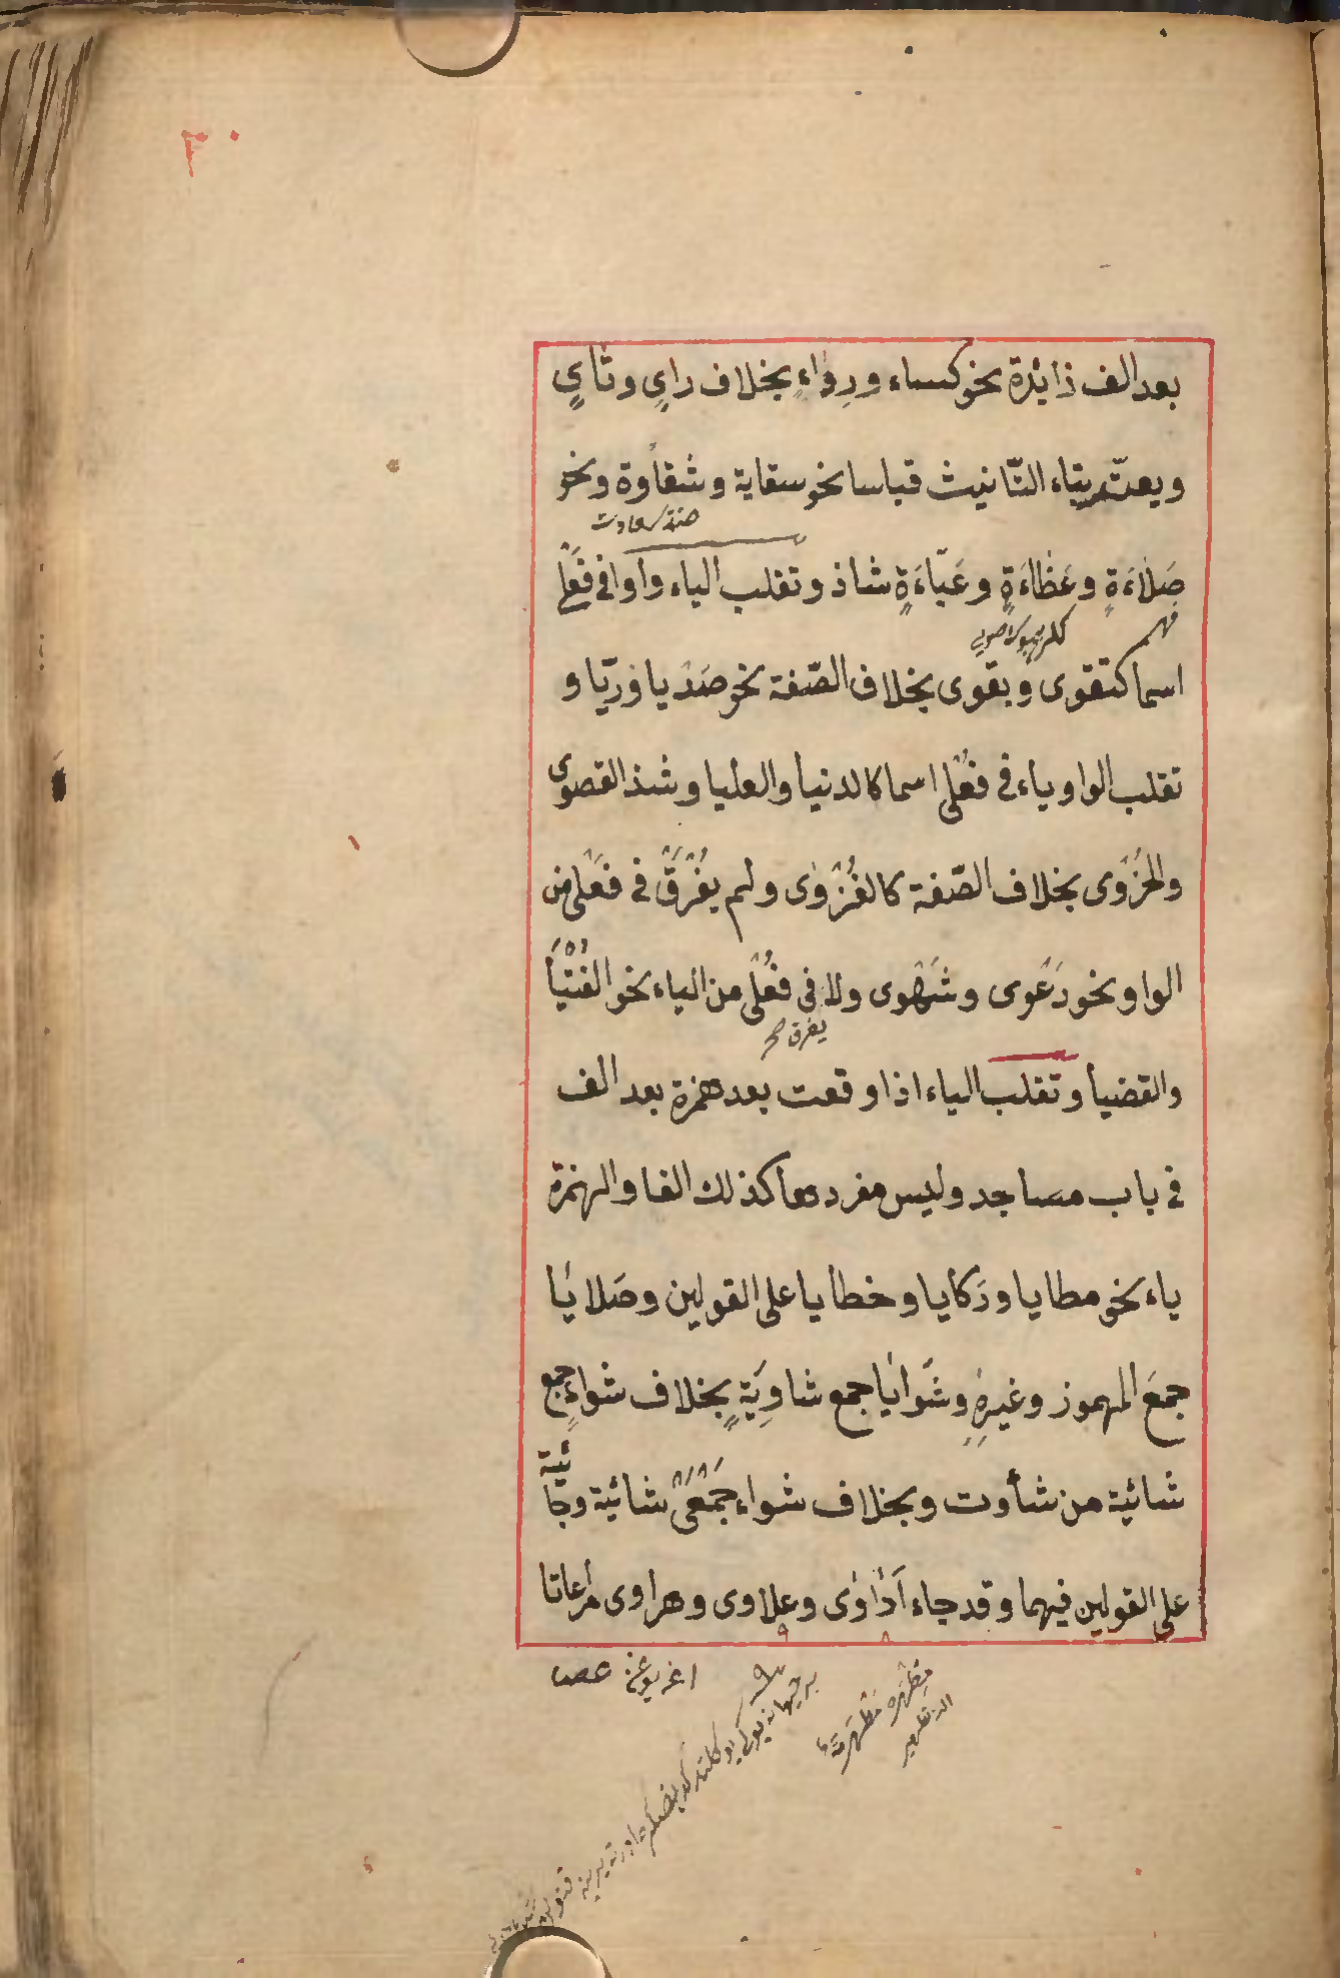 ٣٠
بعد الف زائدة نحو كساء ورِوَاءٍ بخلاف رايٍ وثايٍ
ويعتد بتاء التّانيث قياسا نحو سقاية وشقاوة ونحو
صَلَاءَةٍ وعَظَاءَةٍ وعَبَاءَةٍ شاذ وتقلب الياء واوا في فَعْلى
اسما كتقوى وبقوى بخلاف الصّفة نحو صَدْيا ورَيّا و
تقلب الواو ياء في فُعْلى اسما كالدنيا والعليا وشذ القصوى
والحُزْوى بخلاف الصّفة كالغُزْوٰى ولم يُفْرَقْ في فَعْلى من
الواو نحو دَعْوى وشَهْوى ولا في فُعْلى من الياء نحو الفُتْيَا
يفرق صح
والقضيا وتقلب الياء اذا وقعت بعد همزة بعد الف
في باب مساجد وليس مفردها كذلك الفا والهمزة
ياء نحو مطايا وركايا وخطايا على القولين وصَلايَا
جمعَ المهموز وغيرِهِ وشَوايَا جمع شاوِيَةٍ بخلاف شواءٍ جمع
شائية من شأوت وبخلاف شواء جَمْعَيْ شائية وجائية
على القولين فيهما وقد جاء اَدَاوٰى وعلاوى وهراوى مراعاتا
عصا